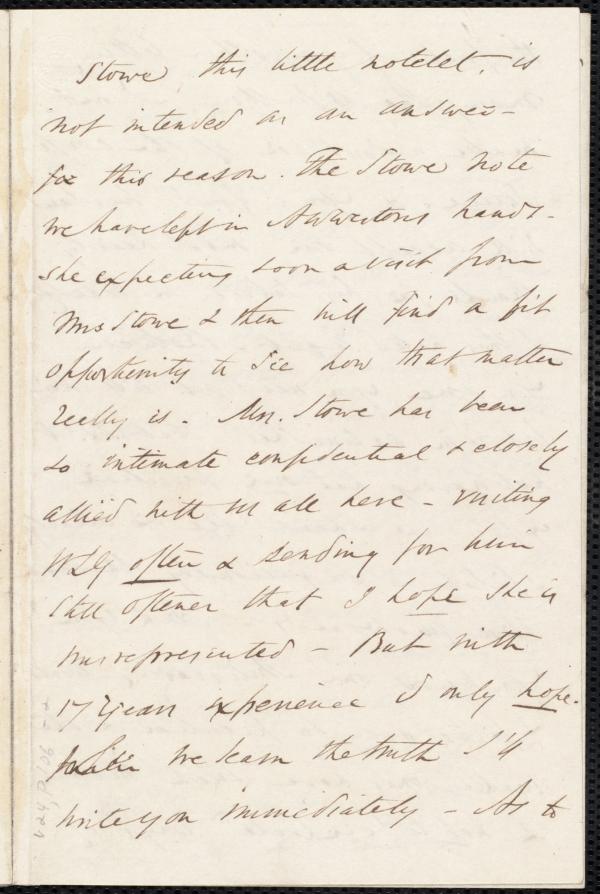 Stowe this little notelet, is
not intended as an answer -
for this reason. The Stowe note
we have left in A Westons hands -
she expecting soon a visit from
Mrs Stowe & then will find a fit
opportunity to see how that matter
really is - Mrs. Stowe has been
so intimate confidential & closely
allied with us all here - visiting
WLG often & sending for him
still oftener that I hope she is
misrepresented - But with
17 years experience I only hope.
we learn the truth I'll
write you immediately - As to
v.24, p.106